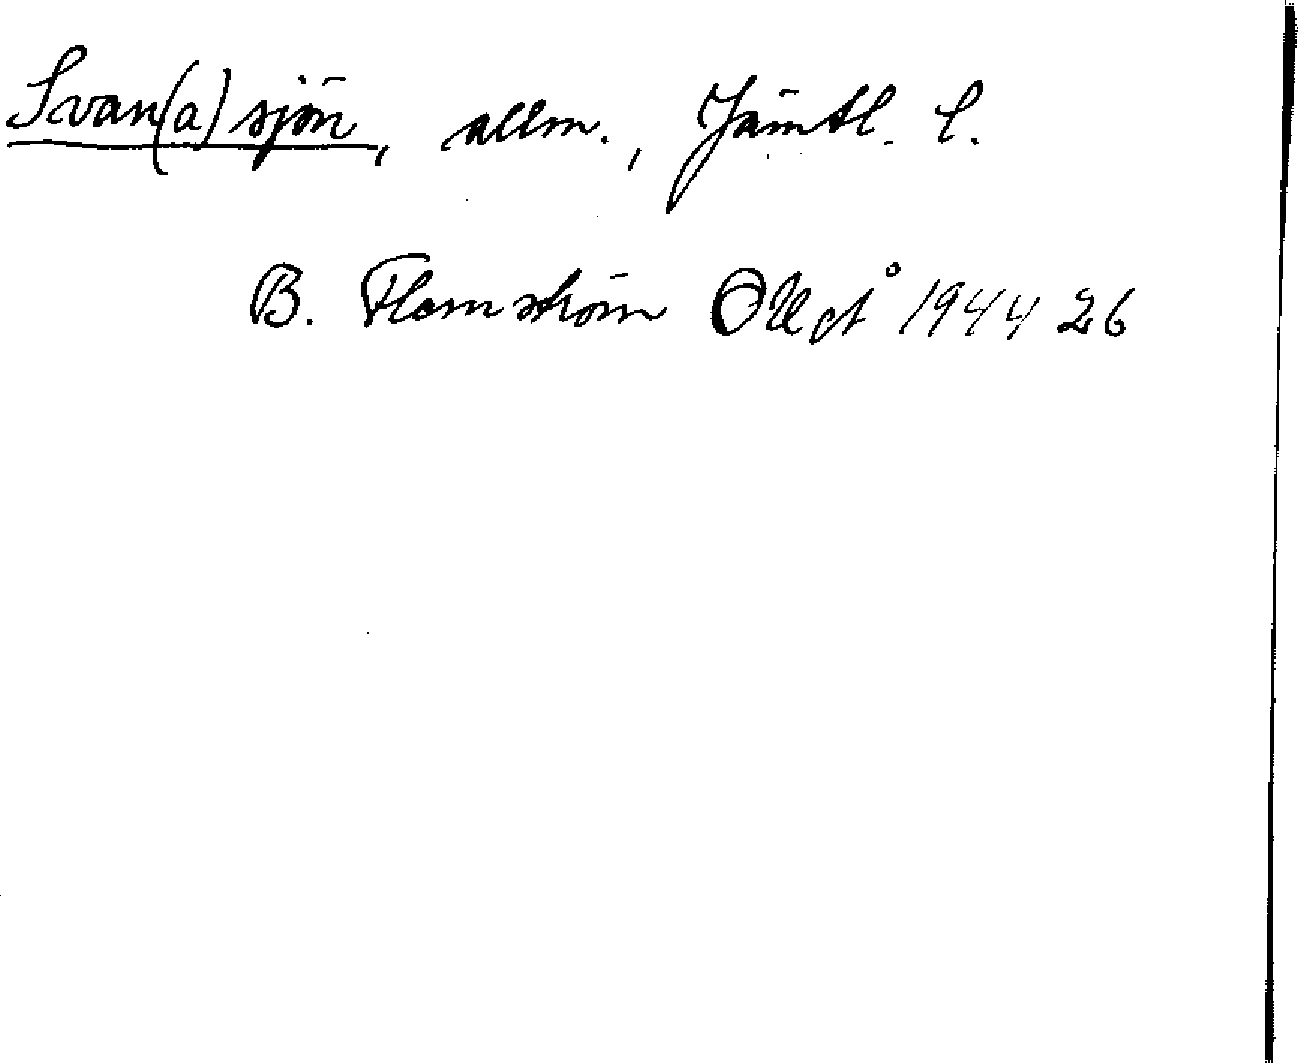 Svan(a)sjön, allm., Jämtl. l.
B. Flemström OUÅ 1944 26